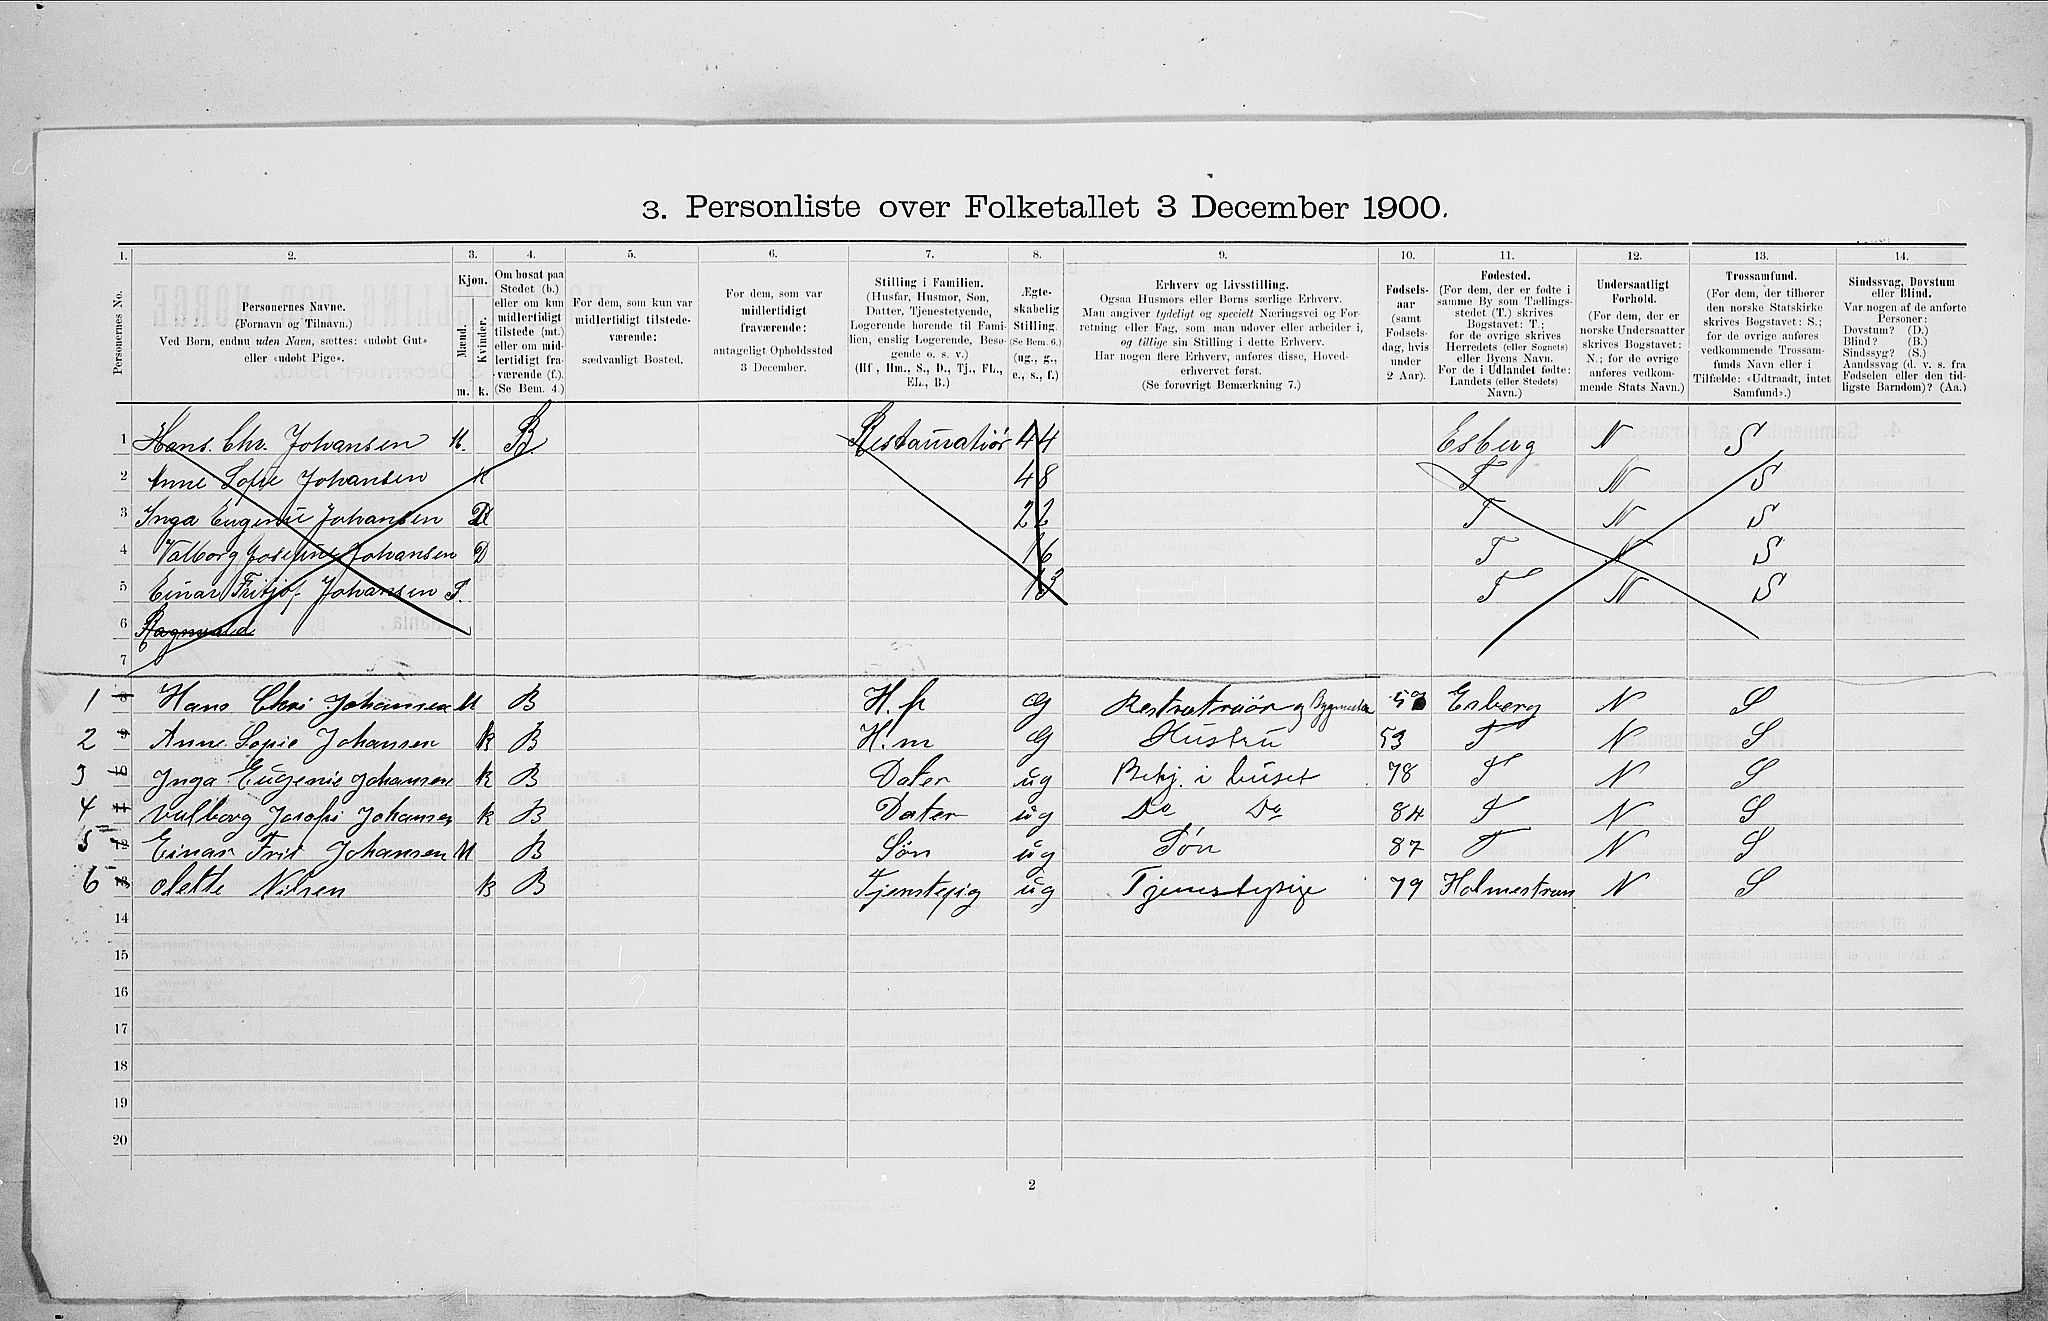 3. Personliste over Folketallet 3 December 1900.
1. 2. 3. 4. 5. 6. 7. 8. 9. 10. 11. 12. 13. 14.
Personernes No.
Personernes Navne.
(Fornavn og Tilnavn.)
Ved Børn, endnu uden Navn, sættes: «udøbt Gut»
eller «udøbt Pige».
Kjøn.
Mænd.
Kvinder.
m. k.
Om bosat paa
Stedet (b.)
eller om kun
midlertidigt
tilstede (mt.)
eller om mid-
lertidigt fra-
værende (f.).
(Se Bem. 4.)
For dem, som kun var
midlertidigt tilstede-
værende:
sædvanligt Bosted.
For dem, som var
midlertidigt
fraværende:
antageligt Opholdssted
3 December.
Stilling i Familien.
(Husfar, Husmor, Søn,
Datter, Tjenestetyende,
Logerende hørende til Fami-
lien, enslig Logerende, Besø-
gende o. s. v.)
(Hf, Hm., S., D., Tj., FL.,
EL., B.)
Ægte-
skabelig
Stilling.
(Se Bem. 6.)
(ug., g.,
e., s., f.)
Erhverv og Livsstilling.
Ogsaa Husmors eller Børns særlige Erhverv.
Man angiver tydeligt og specielt Næringsvei og For-
retning eller Fag, som man udøver eller arbeider i,
og tillige sin Stilling i dette Erhverv.
Har nogen flere Erhverv, anføres disse, Hoved-
erhvervet først.
(Se forøvrigt Bemærkning 7.)
Fødsels-
aar
(samt
Fødsels-
dag, hvis
under
2 Aar).
Fødested.
(For dem, der er fødte i
samme By som Tællings-
stedet (T.) skrives
Bogstavet: T.;
for de øvrige skrives
Herredets (eller Sognets)
eller Byens Navn.
For de i Udlandet fødte:
Landets (eller Stedets)
Navn.)
Undersaatligt
Forhold.
(For dem, der er
norske Undersaatter
skrives Bogstavet:
N.; for de øvrige
anføres vedkom-
mende Stats Navn.)
Trossamfund.
(For dem, der tilhører
den norske Statskirke
skrives Bogstavet: S.;
for de øvrige anføres
vedkommende Trossam-
funds Navn eller i
Tilfælde: «Udtraadt, intet
Samfund».)
Sindssvag, Døvstum
eller Blind.
Var nogen af de anførte
Personer:
Døvstum? (D.)
Blind? (B.)
Sindssyg? (S.)
Aandssvag (d. v. s. fra
Fødselen eller den tid-
ligste Barndom)? (Aa.)
1 Hans. Chr. Johansen M. B. Restauratiør 44 Esberg N S
2 Anne Sofie Johansen K 48 T N S
3 Inga Eugenie Johansen D 22 T N S
4 Valborg Josefine Johansen D 16 T N S
5 Einar Fritjof Johansen 13 T N S
6 Ragnvald
7
1 8 Hans Chri Johansen M B H.f G Restratriør og Bygmester Esberg N S
2 9 Anne Sopie Johansen K B H.m G Hustru 53 T N S
3 10 Inga Eugenie Johansen K B Dater ug Behj. i huset 78 T N S
4 11 Valborg Josefi Johansen K B Dater ug Do Do 84 T N S
5 12 Einar Frit Johansen M B Søn ug Søn 87 T N S
6 13 Olette Nilsen K B Tjenstepig ug Tjenestepige 79 Holmestran N S
14
15
16
17
18
19
20
2